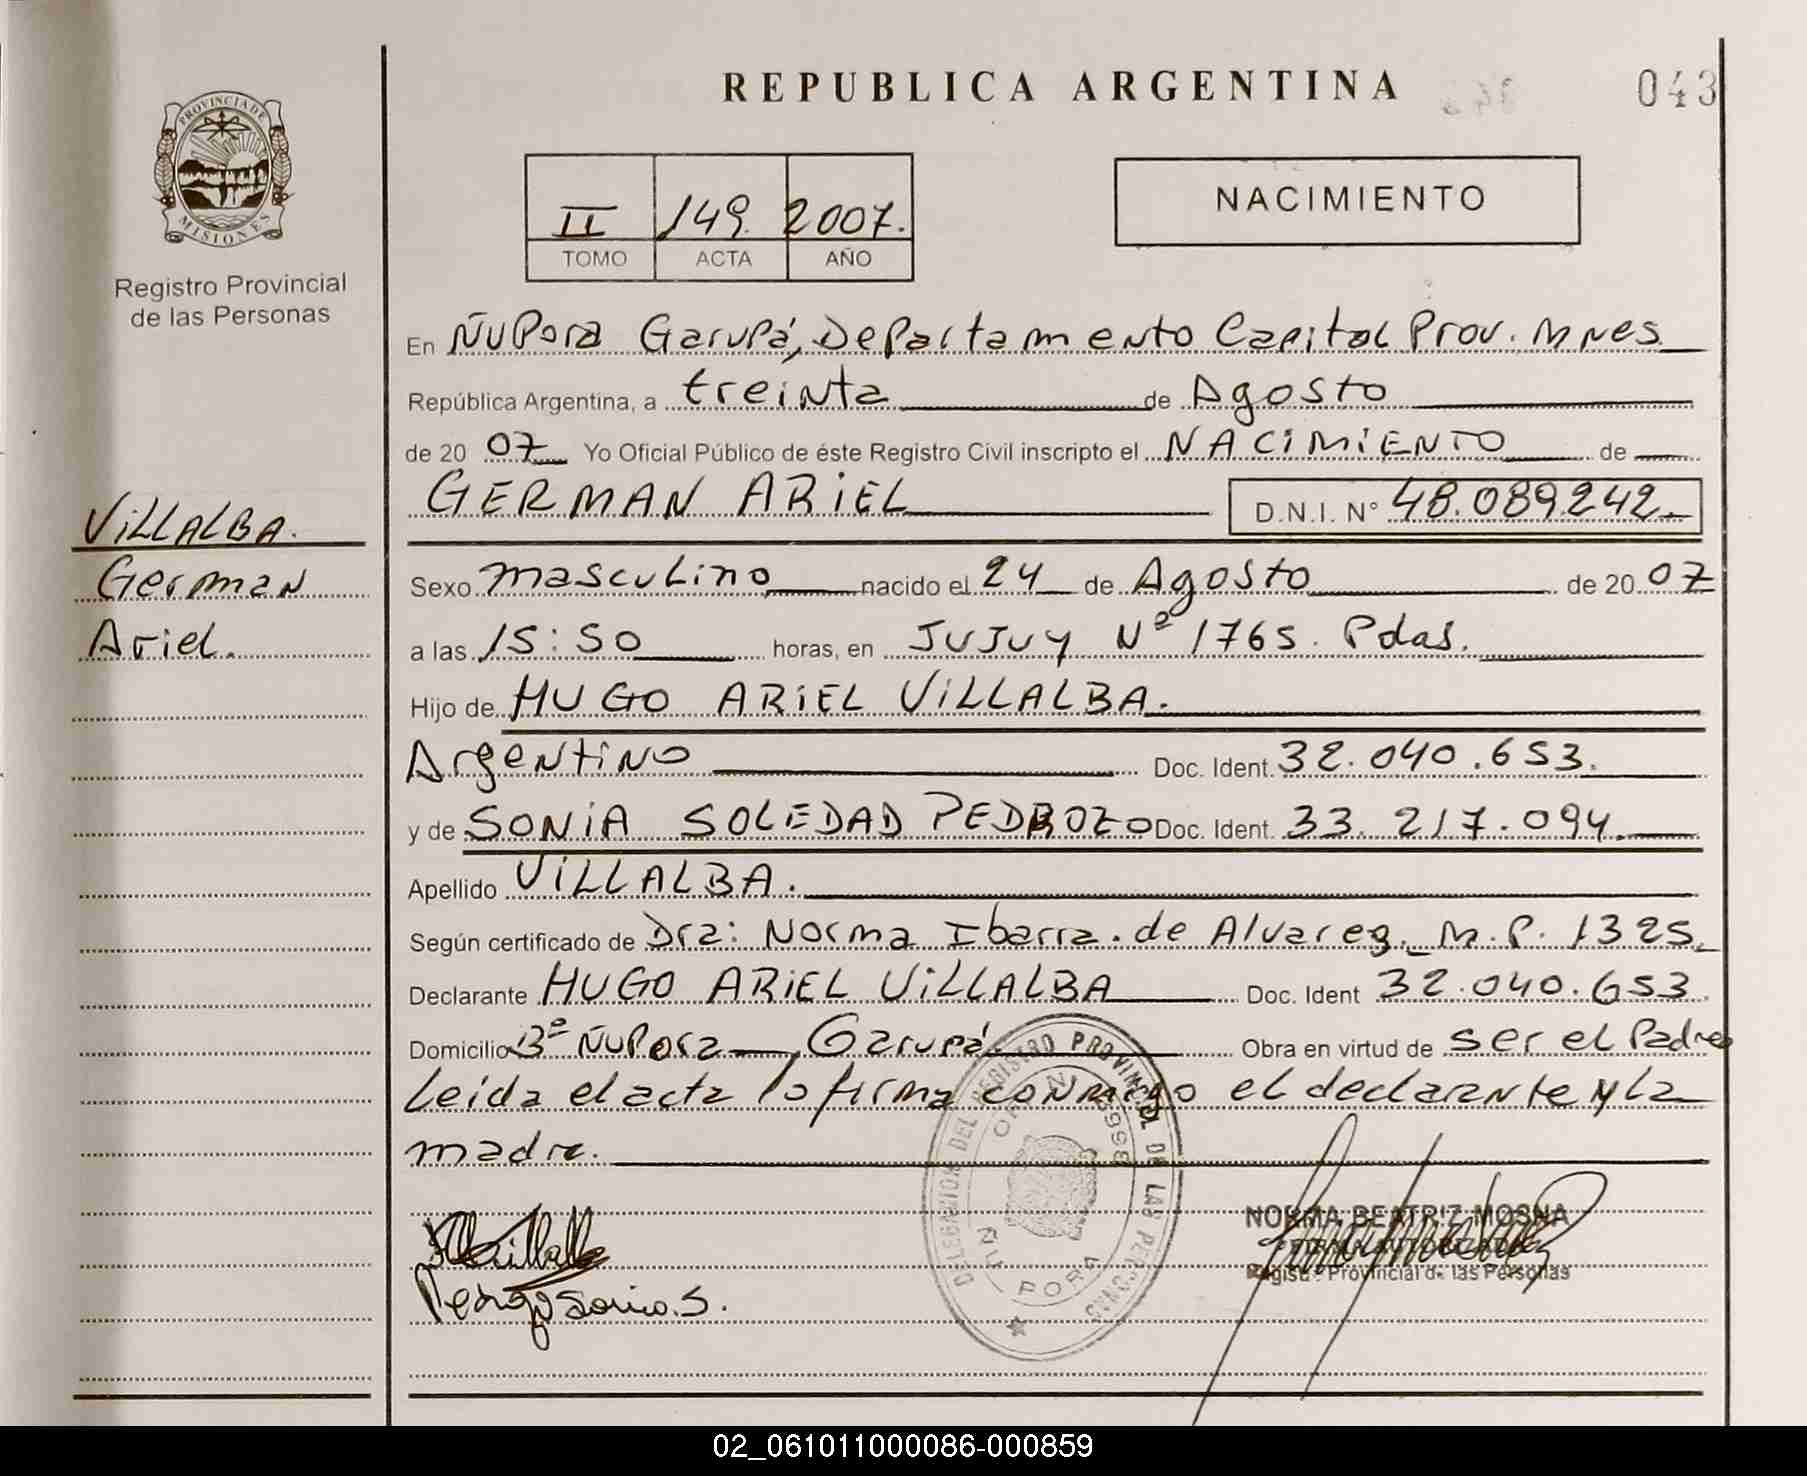 REPUBLICA ARGENTINA
043
PROVINCIA DE
MISIONES
Registro Provincial
de las Personas
II 149. 2007.
TOMO ACTA AÑO
NACIMIENTO
En Ñu Pora Garupá, Departamento Capital Prov. Mnes
República Argentina, a treinta de Agosto
de 20 07 Yo Oficial Público de éste Registro Civil inscripto el NACIMIENTO de
GERMAN ARIEL D.N.I. N° 48.089.242
VILLALBA.
German
Ariel.
Sexo masculino nacido el 24 de Agosto de 20 07
a las 15:50 horas, en JUJUY Nº 1765. Pdas.
Hijo de HUGO ARIEL VILLALBA.
Argentino Doc. Ident. 32.040.653.
y de SONIA SOLEDAD PEDROZO Doc. Ident. 33.217.094.
Apellido VILLALBA.
Según certificado de Dra: Norma Ibarra. de Alvarez. M.P. 1325.
Declarante HUGO ARIEL VILLALBA Doc. Ident 32.040.653.
Domicilio Bº Ñu Pora, Garupá. Obra en virtud de ser el Padre
Leida el acta la firma conmigo el declarante y la
madre.
DELEGACION DEL REGISTRO PROVINCIAL DE LAS PERSONAS
ÑU PORA
NORMA BEATRIZ MOSNA
FIRMA AUTORIZADA
Registro Provincial de las Personas
Pedrozo Sonia. S.
02_061011000086-000859